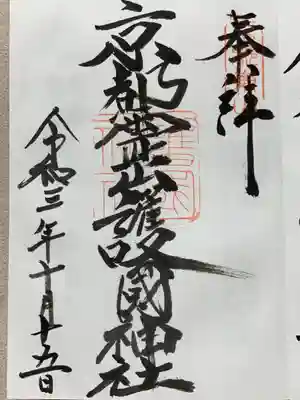 奉拝
京都霊山護國神社
令和三年十月十五日